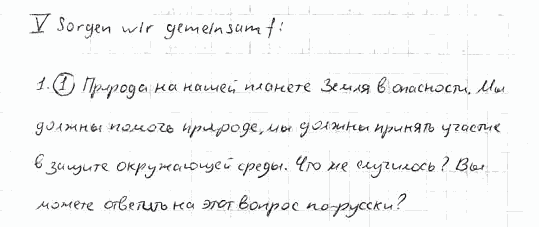 V Sorgen wir gemeinsam f:
1. ① Природа на нашей планете Земля в опасности. Мы
должны помочь природе, мы должны принять участие
в защите окружающей среды. Что же случилось? Вы
можете ответить на этот вопрос по-русски?